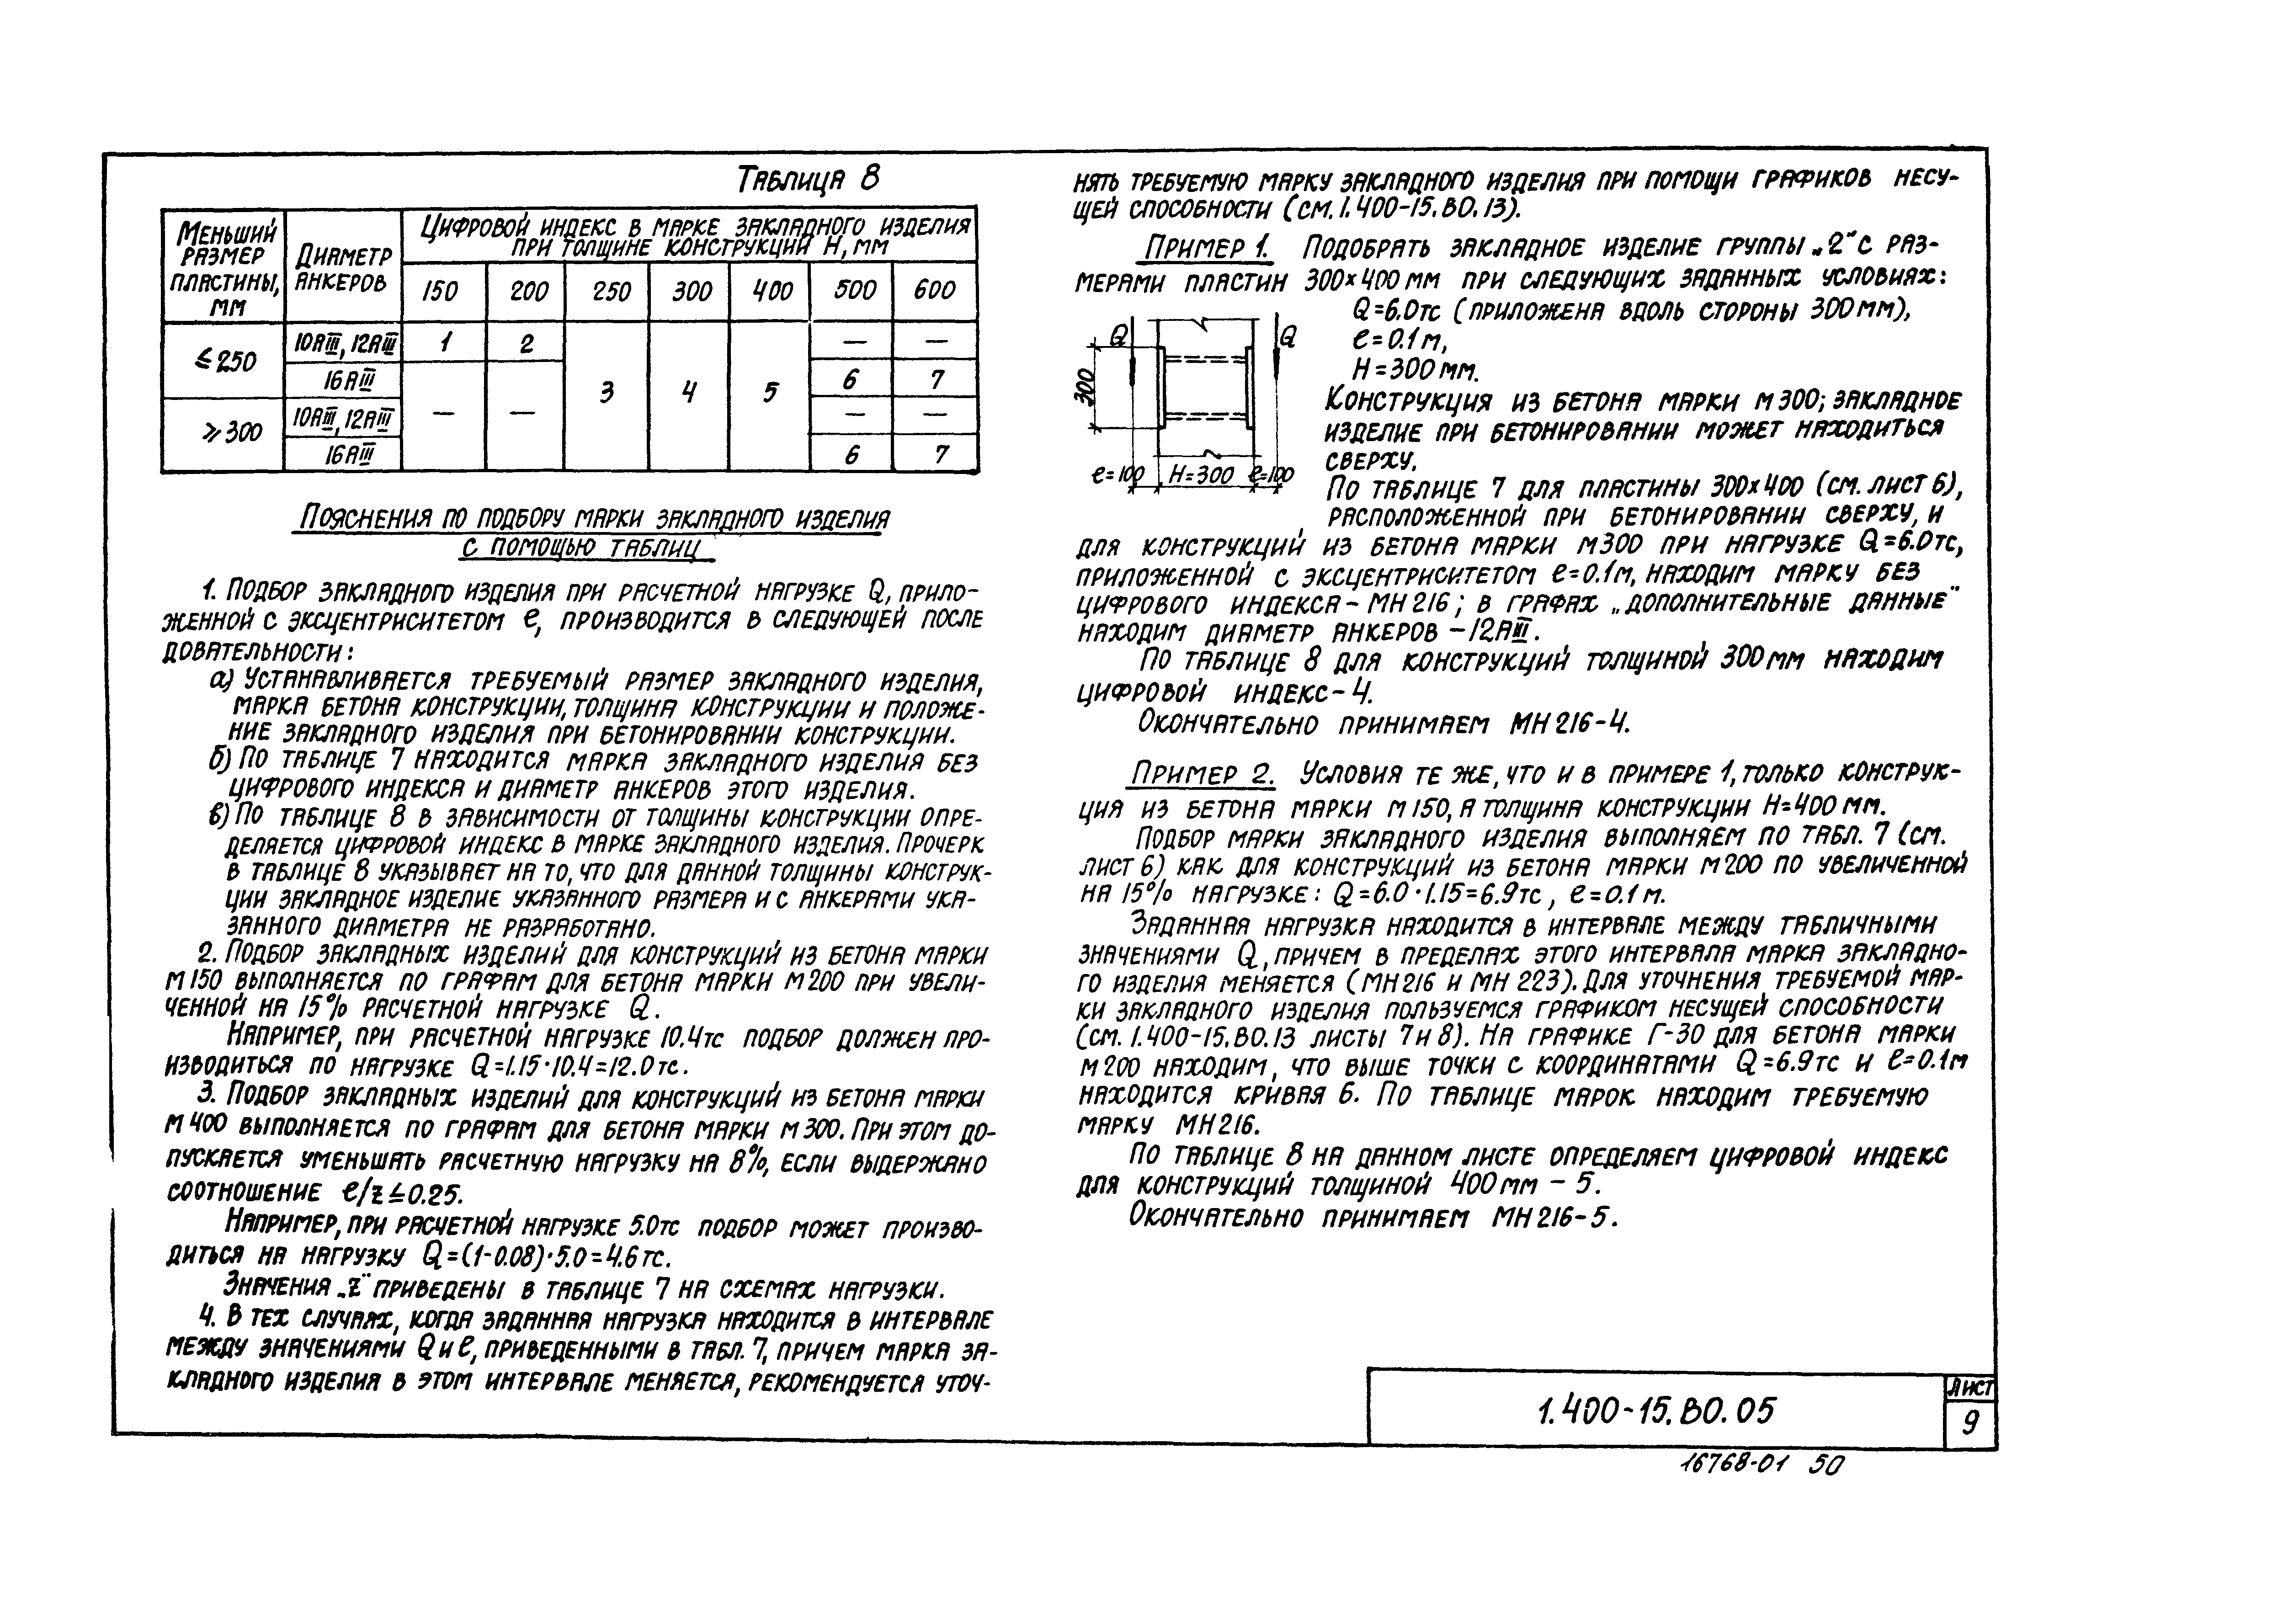 Таблица 8
Меньший размер пластины, мм | Диаметр анкеров | Цифровой индекс в марке закладного изделия при толщине конструкций H, мм
150 | 200 | 250 | 300 | 400 | 500 | 600
≤250 | 10АIII, 12АIII | 1 | 2 | 3 | 4 | 5 | — | —
16АIII | — | — | 6 | 7
≥300 | 10АIII, 12АIII | — | —
16АIII | 6 | 7
Пояснения по подбору марки закладного изделия
с помощью таблиц
1. Подбор закладного изделия при расчетной нагрузке Q, прило-
женной с эксцентриситетом e, производится в следующей после
довательности:
а) Устанавливается требуемый размер закладного изделия,
марка бетона конструкции, толщина конструкции и положе-
ние закладного изделия при бетонировании конструкции.
б) По таблице 7 находится марка закладного изделия без
цифрового индекса и диаметр анкеров этого изделия.
в) По таблице 8 в зависимости от толщины конструкции опре-
деляется цифровой индекс в марке закладного изделия. Прочерк
в таблице 8 указывает на то, что для данной толщины конструк-
ции закладное изделие указанного размера и с анкерами ука-
занного диаметра не разработано.
2. Подбор закладных изделий для конструкций из бетона марки
М150 выполняется по графам для бетона марки М200 при увели-
ченной на 15% расчетной нагрузке Q.
Например, при расчетной нагрузке 10.4тс подбор должен про-
изводиться по нагрузке Q=1.15·10.4=12.0тс.
3. Подбор закладных изделий для конструкций из бетона марки
М400 выполняется по графам для бетона марки М300. При этом до-
пускается уменьшать расчетную нагрузку на 8%, если выдержано
соотношение e/z≤0.25.
Например, при расчетной нагрузке 5.0тс подбор может произво-
диться на нагрузку Q=(1-0.08)·5.0=4.6тс.
Значения „z" приведены в таблице 7 на схемах нагрузки.
4. В тех случаях, когда заданная нагрузка находится в интервале
между значениями Q и e, приведенными в табл. 7, причем марка за-
кладного изделия в этом интервале меняется, рекомендуется уточ-
нять требуемую марку закладного изделия при помощи графиков несу-
щей способности (см. 1.400-15.В0.13).
Пример 1. Подобрать закладное изделие группы „2" с раз-
мерами пластин 300×400 мм при следующих заданных условиях:
Q=6.0тс (приложена вдоль стороны 300мм),
e=0.1м,
H=300мм.
Q
Q
300
e=100 H=300 e=100
Конструкция из бетона марки М300; закладное
изделие при бетонировании может находиться
сверху.
По таблице 7 для пластины 300×400 (см. лист 6),
расположенной при бетонировании сверху, и
для конструкций из бетона марки М300 при нагрузке Q=6.0тс,
приложенной с эксцентриситетом e=0.1м, находим марку без
цифрового индекса – МН216; в графах „дополнительные данные"
находим диаметр анкеров – 12АIII.
По таблице 8 для конструкций толщиной 300мм находим
цифровой индекс – 4.
Окончательно принимаем МН216-4.
Пример 2. Условия те же, что и в примере 1, только конструк-
ция из бетона марки М150, а толщина конструкции H=400мм.
Подбор марки закладного изделия выполняем по табл. 7 (см.
лист 6) как для конструкций из бетона марки М200 по увеличенной
на 15% нагрузке: Q=6.0·1.15=6.9тс, e=0.1м.
Заданная нагрузка находится в интервале между табличными
значениями Q, причем в пределах этого интервала марка закладно-
го изделия меняется (МН216 и МН 223). Для уточнения требуемой мар-
ки закладного изделия пользуемся графиком несущей способности
(см. 1.400-15.В0.13 листы 7 и 8). На графике Г-30 для бетона марки
М200 находим, что выше точки с координатами Q=6.9тс и e=0.1м
находится кривая 6. По таблице марок находим требуемую
марку МН216.
По таблице 8 на данном листе определяем цифровой индекс
для конструкций толщиной 400мм – 5.
Окончательно принимаем МН216-5.
1.400-15.В0.05
Лист
9
16768-01 50